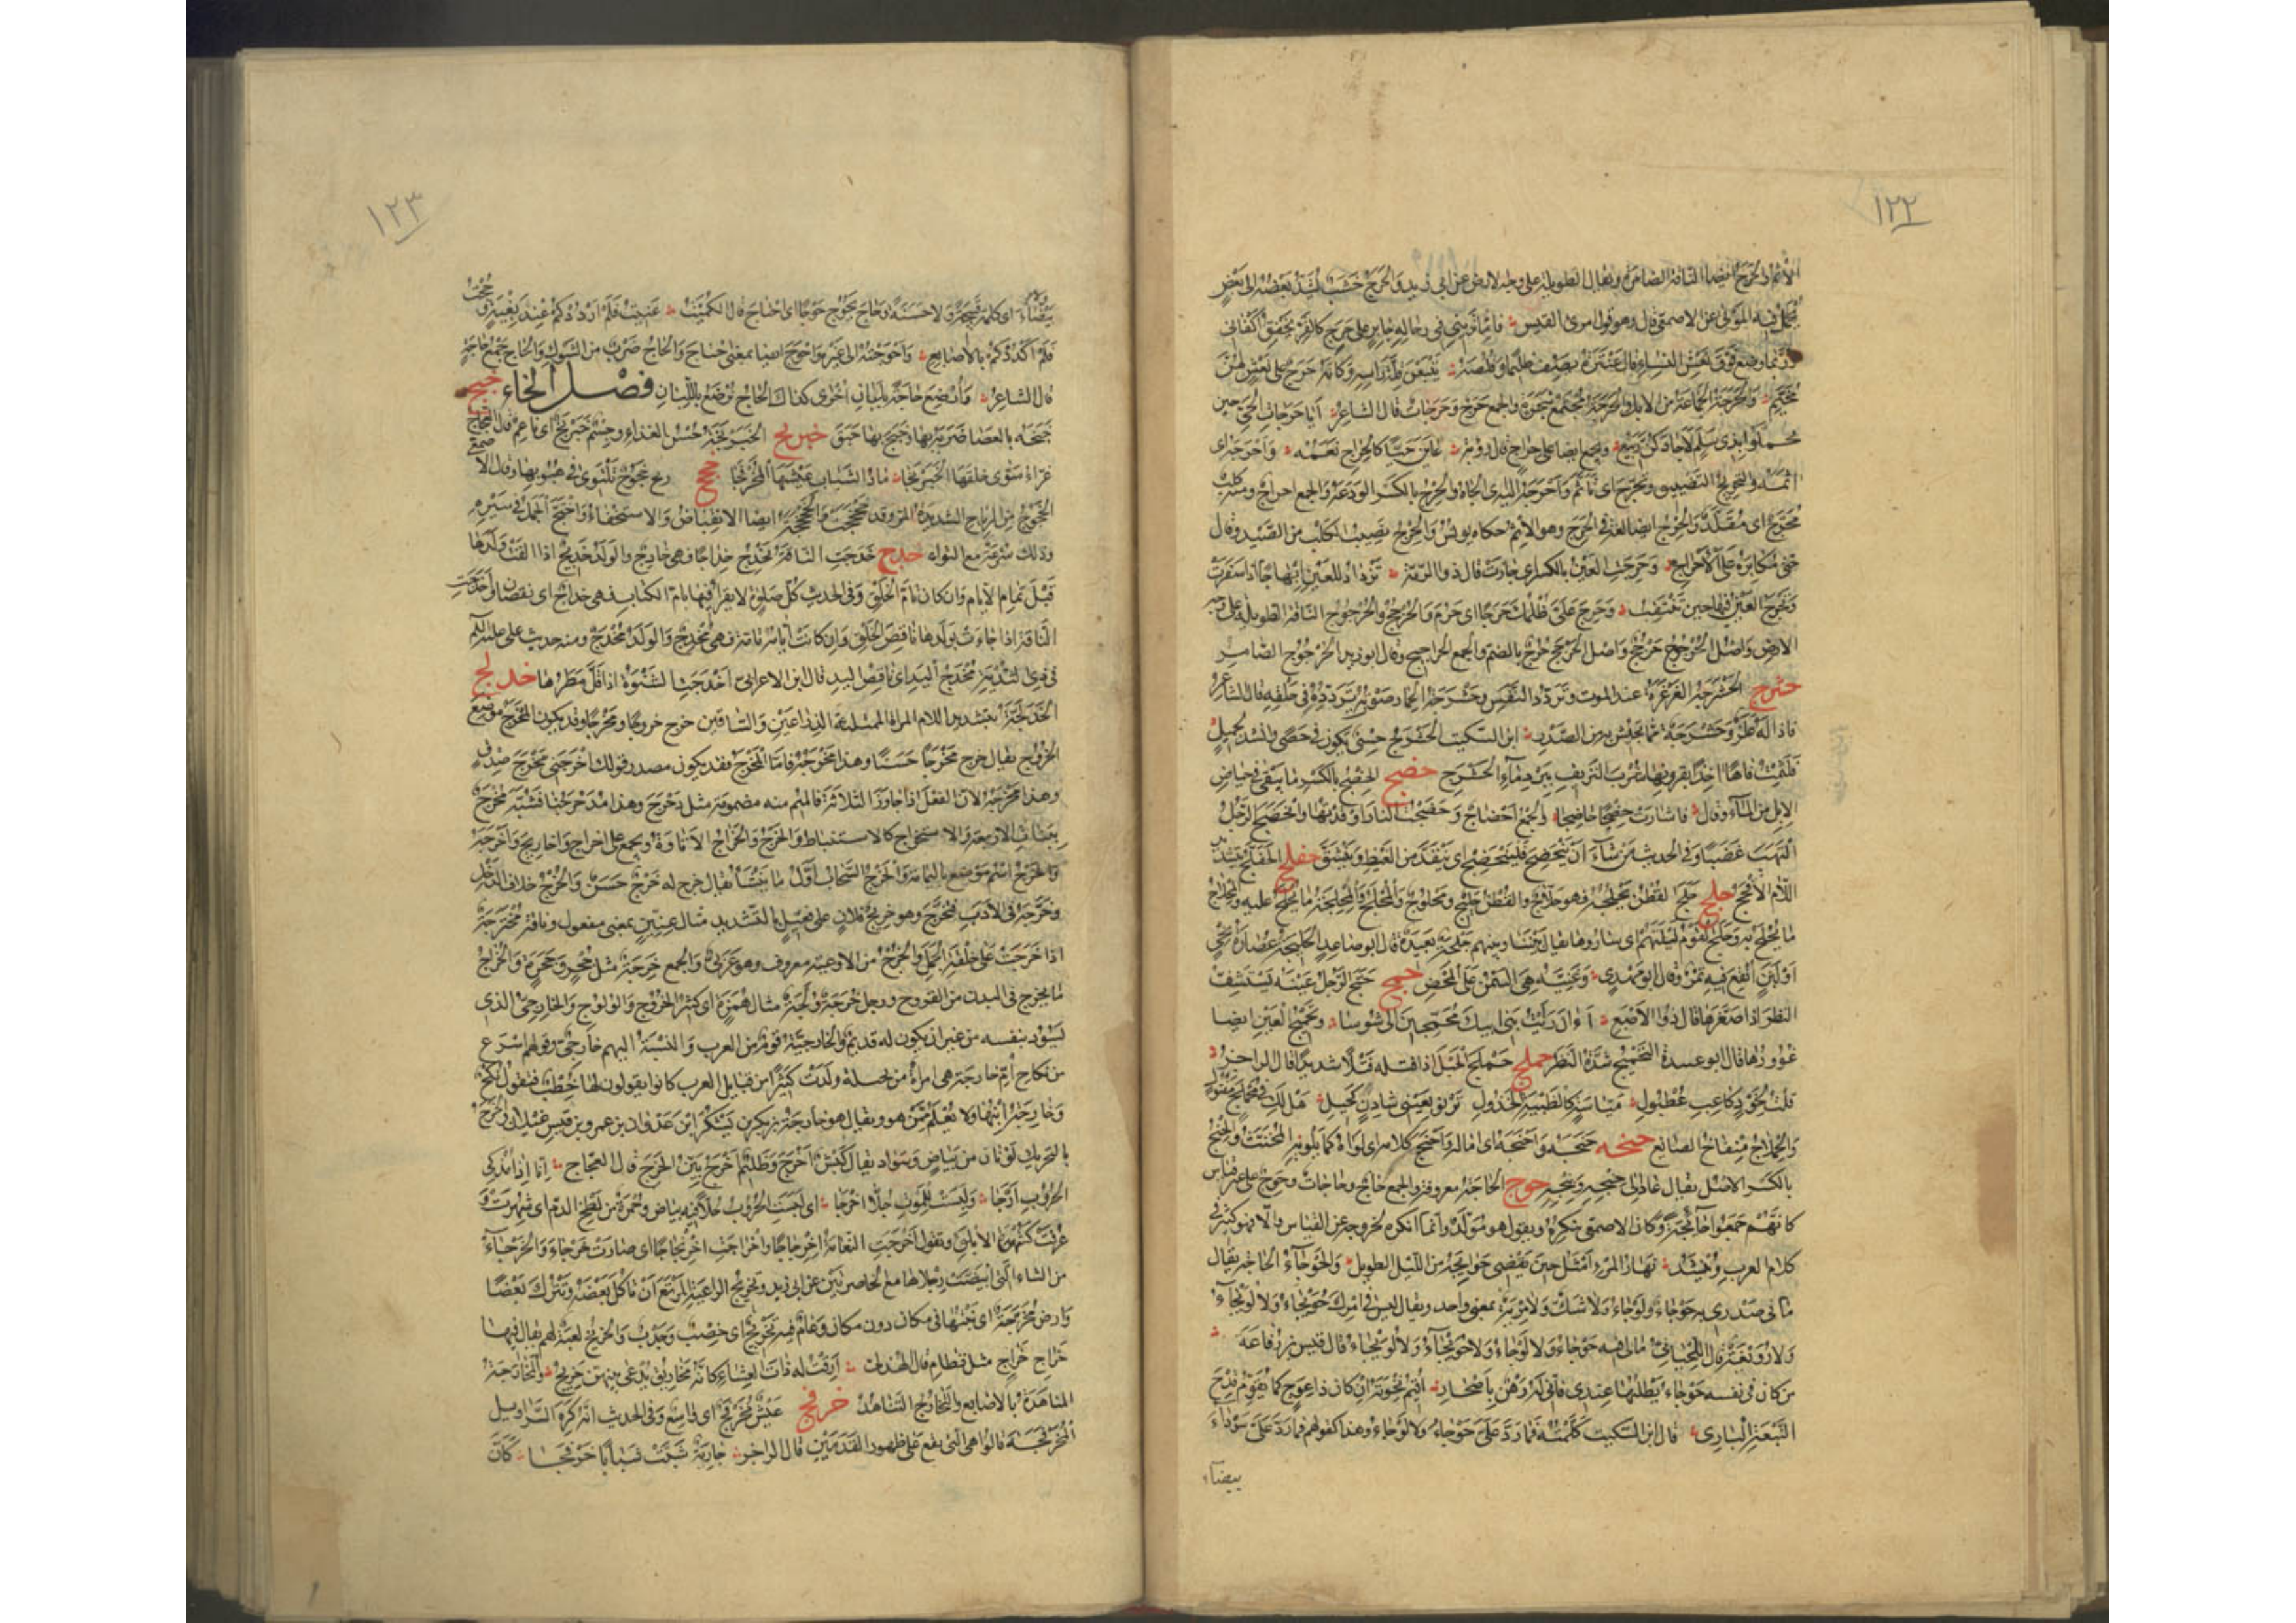 ١٢٢
الأثم والحرج ايضا الناقة الضامرة ويقال الطويلة على وجه الارض عن ابى زيد والحرج خشب يشد بعضه الى بعض
يحمل فيه الموتى عن الاصمعى قال وهو قول امرئ القيس فاما ترينى فى رحالة جابر على حرج كالقر تخفق اكفانى
وربما وضع فوق نعش النساء قال عنترة يصف ظليما وقلصه يتبعن قلة راسه وكانه حرج على نعش لهن
مخيم والحرجة الجماعة من الابل والحرجة مجتمع شجر والجمع حرج وحرجات قال الشاعر ايا حرجات الحى حين
تحملوا بذى سلم لا جادكن ربيع ويجمع ايضا على حراج قال رؤبة عاين حيا كالحراج نعمه واحرجه اى
اثمه والتحريج التضييق وتحرج اى تاثم واحرجه اليه اى الجاه والحرج بالكسر الودعة والجمع احراج ومنه كلب
محرج اى مقلد والحرج ايضا لغة فى الحرج وهو الاثم حكاه يونس والحرج نصيب الكلب من الصيد وقال
حتى اكابره على الاحراج وحرجت العين بالكسر اى حارت قال ذو الرمة تزداد للعين ابهاجا اذا سفرت
وتحرج العين فيها حين تنتقب وحرج على ظلمك حرجا اى حرم والحرجج والحرجوج الناقة الطويلة على وجه
الارض واصل الحرجوج حرجج واصل الحرجج حرج بالضم والجمع الحراجيج وقال ابو زيد الحرجوج الضامر
حشرج الحشرجة الغرغرة عند الموت وتردد النفس وحشرجة الحمار صوته يردده فى حلقه قال الشاعر
فاذا له علز وحشرجة مما يجيش به من الصدر ابن السكيت الحشرج حسى يكون فى حصى وانشد لجميل
فلثمت فاها اخذا بقرونها شرب النزيف ببرد ماء الحشرج حضج الحضج بالكسر ما يبقى فى حياض
الابل من الماء وقال فاسارت حضجا حاضجا والجمع احضاج وحضجت النار اوقدتها وانحضج الرجل
التهب غضبا وفى الحديث من شاء ان ينحضج فلينحضج اى ينقد من الغيظ وينشق حفلج الحفلج بتشديد
اللام الافحج حلج حلج القطن يحلجه فهو حلاج والقطن حليج ومحلوج والمحلج والمحلجة ما يحلج عليه والمحلاج
ما يحلج به وحلج القوم ليلتهم اى ساروها يقال بيننا وبينهم حلجة بعيدة قال ابو صاعد الحليجة عصارة نحى
او لبن انقع فيه تمر وقال ابو مهدى وغنية هى السمن على المحض حمج حمج الرجل عينه ليستشف
النظر اذا صغرها قال ذو الاصبع اان رايت بنى ابيك محمجين الى شوسا وتحميج العين ايضا
غؤورها قال ابو عبيدة التحميج شدة النظر حملج حملج الحبل اذا فتله فتلا شديدا قال الراجز
قلت لخود كاعب عطبول مياسة كالظبية الخذول ترنو بعينى شادن كحيل هل لك فى محملج مفتول
والحملاج منفاخ الصائغ حنج حنجه واحنجه اى اماله واحنج كلامه اى لواه كما يلويه المخنث والحنج
بالكسر الاصل يقال عاد الى حنجه وبنجه حوج الحاجة معروفة والجمع حاج وحاجات وحوج على غير قياس
كانهم جمعوا حائجة وكان الاصمعى ينكره ويقول هو مولد وانما انكره لخروجه عن القياس والا فهو كثير فى
كلام العرب وينشد نهار المرء امثل حين يقضى حوائجه من الليل الطويل والحوجاء الحاجة يقال
ما فى صدرى به حوجاء ولوجاء ولا شك ولا مرية بمعنى واحد ويقال ليس فى امرك حويجاء ولا لويجاء
ولا رويغة قال اللحيانى ما لى فيه حوجاء ولا لوجاء ولا حويجاء ولا لويجاء قال قيس بن رفاعة
من كان فى نفسه حوجاء يطلبها عندى فانى له رهن باصحار اقيم نخوته ان كان ذا عوج كما يقوم قدح
النبعة البارى قال ابن السكيت كلمته فما رد على حوجاء ولا لوجاء وهذا كقولهم فما رد على سوداء
بيضاء
١٢٣
بيضاء اى كلمة قبيحة ولا حسنة وحاج يحوج حوجا اى احتاج قال الكميت غنيت فلم ارددكم عند بغية وحجت
فلم اكددكم بالاصابع واحوجته الى غيره واحوج ايضا بمعنى احتاج والحاج ضرب من الشوك والحاج جمع حاجة
قال الشاعر وارضع حاجة بلبان اخرى كذاك الحاج ترضع باللبان فصل الخاء خبج
خبجه بالعصا ضربه بها وخبج بها حبق خبرنج الخبرنجة حسن الغذاء وجسم خبرنج اى ناعم قال العجاج
غراء سوى خلقها الخبرنجا ماد الشباب عيشها المخرفجا خجج ريح خجوج تلتوى فى هبوبها وقال الاصمعى
الخجوج من الرياح الشديدة المر وقد خجخجت والخجخجة ايضا الانقباض والاستخفاء واختج الجمل فى سيره
وذلك سرعة مع التواء خدج خدجت الناقة تخدج خداجا فهى خادج والولد خديج اذا القت ولدها
قبل تمام الايام وان كان تام الخلق وفى الحديث كل صلوة لا يقرا فيها بام الكتاب فهى خداج اى نقصان واخدجت
الناقة اذا جاءت بولدها ناقص الخلق وان كانت ايامه تامة فهى مخدج والولد مخدج ومنه حديث على عليه السلم
فى ذى الثدية مخدج اليد اى ناقص اليد قال ابن الاعرابى اخدجت الشتوة اذا قل مطرها خدلج
الخدلجة بتشديد اللام المراة الممتلئة الذراعين والساقين خرج خروجا ومخرجا وقد يكون المخرج موضع
الخروج يقال خرج مخرجا حسنا وهذا مخرجه فاما المخرج فقد يكون مصدر قولك اخرجنى مخرج صدق
وهذا مخرجه لان الفعل اذا جاوز الثلاثة فالميم منه مضمومة مثل دحرج وهذا مدحرجنا فشبه مخرج
ببنات الاربعة والاستخراج كالاستنباط والخرج والخراج الاتاوة ويجمع على اخراج واخاريج واخرجة
والخرج اسم موضع باليمامة والخرج السحاب اول ما ينشا يقال خرج له خرج حسن والخرج خلاف الدخل
وخرجه فى الادب فتخرج وهو خريج فلان على فعيل بالتشديد مثال عنين بمعنى مفعول وناقة مخترجة
اذا خرجت على خلقة الجمل والخرج من الاوعية معروف وهو عربى والجمع خرجة مثل جحر وجحرة والخراج
ما يخرج فى البدن من القروح ورجل خرجة ولجة مثال همزة اى كثير الخروج والولوج والخارجى الذى
يسود بنفسه من غير ان يكون له قديم والخارجية قوم من العرب والنسبة اليهم خارجى وقولهم اسرع
من نكاح ام خارجة هى امراة من بجيلة ولدت كثيرا من قبايل العرب كانوا يقولون لها خطب فتقول نكح
وخارجة ابنها ولا يعلم ممن هو ويقال هو خارجة بن بكر بن يشكر ابن عدوان بن عمرو بن قيس عيلان والخرج
بالتحريك لونان من بياض وسواد يقال كبش اخرج وظليم اخرج بين الخرج قال العجاج انا اذا مذكى
الحروب ارجا ولبست للموت جلا اخرجا اى لبست الحروب جلا فيه بياض وحمرة من لطخ الدم اى شهرت و
عرفت كشهرة الابلق وتقول اخرجت النعامة اخرجاجا واخراجت اخريجاجا اى صارت خرجاء والخرجاء
من الشاء التى ابيضت رجلاها مع الخاصرتين عن ابى زيد وتخريج الراعية المرتع ان تاكل بعضه وتترك بعضا
وارض مخرجة اى نبتها فى مكان دون مكان وعام فيه تخريج اى خصب وجدب والخريج لعبة لهم يقال فيها
خراج خراج مثل قطام قال الهذلى ارقت له ذات العشاء كانه مخاريق يدعى بينهن خريج والمخارجة
المناهدة بالاصابع والتخارج التناهد خرفج عيش مخرفج اى واسع وفى الحديث انه كره السراويل
المخرفجة قالوا هى التى تقع على ظهور القدمين قال الراجز جارية شبت شبابا خرفجا كان